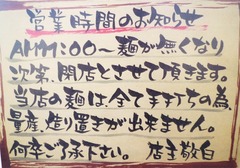 営業時間のお知らせ
AM11:00〜麺が無くなり
次第、閉店とさせて頂きます。
当店の麺は、全て手打ちの為、
量産、作り置きが出来ません。
何卒ご了承下さい。 店主敬白